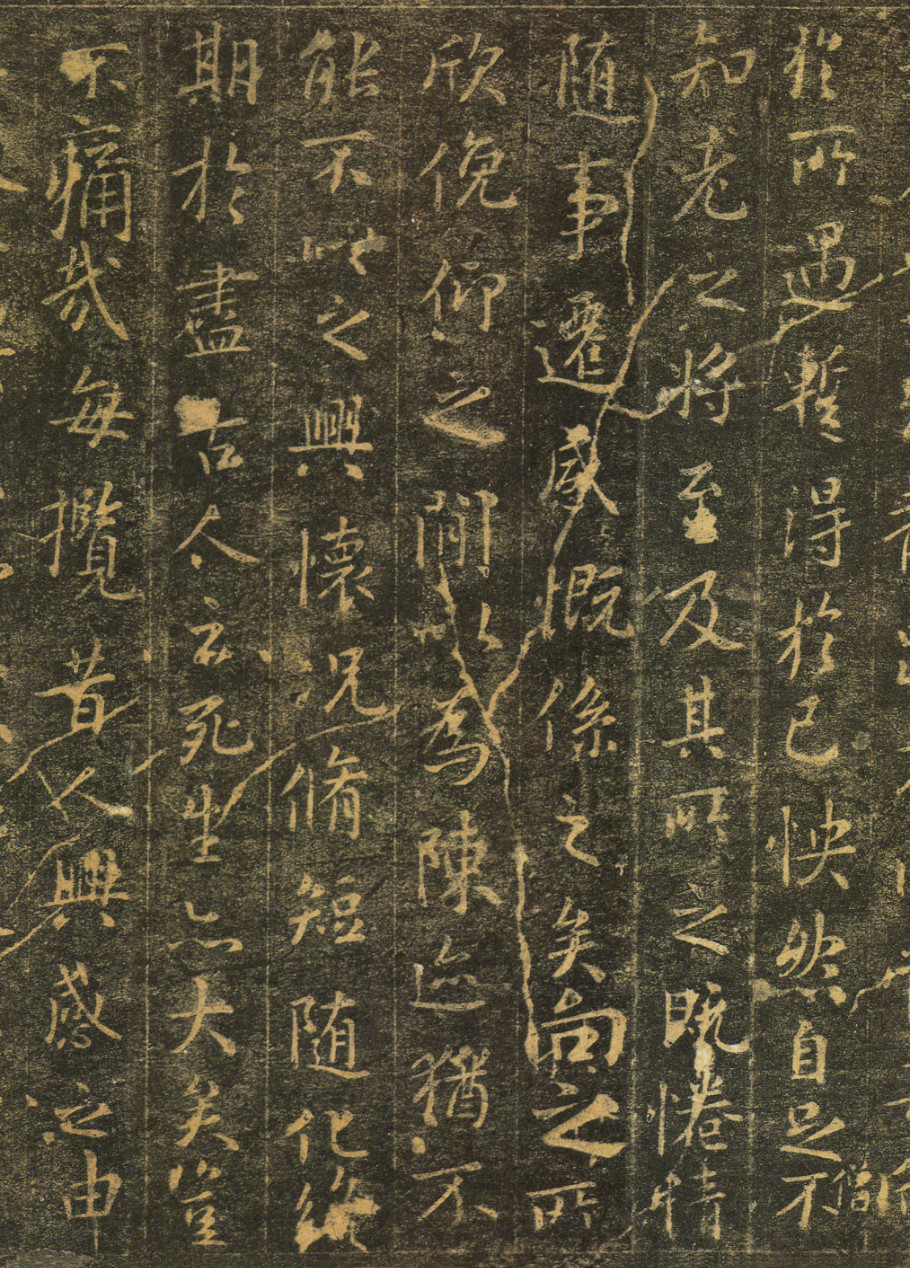 於所遇暫得於己怏然自足不
知老之將至及其所之既惓情
随事遷感慨係之矣向之所
欣俛仰之間以為陳迹猶不
能不以之興懷况脩短随化終
期於盡古人云死生亦大矣豈
不痛哉每攬昔人興感之由
僧